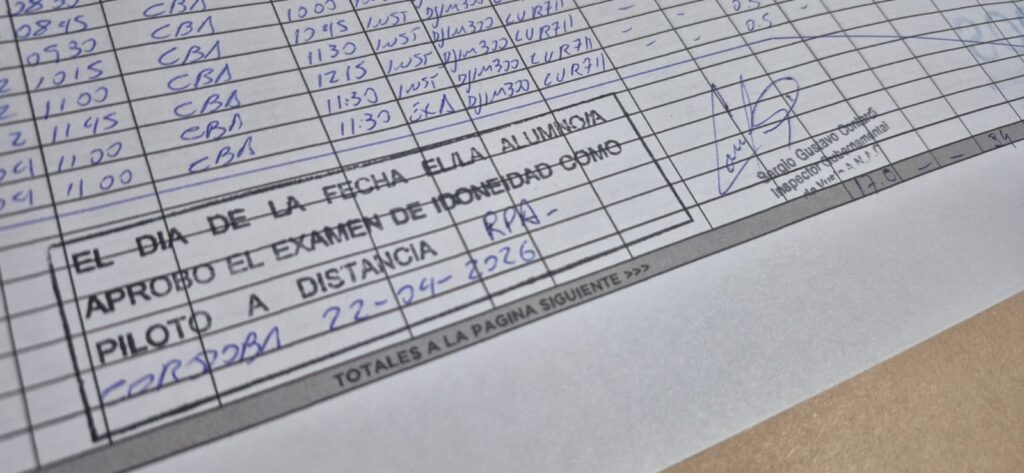 0845 CBA 1000
0930 CBA 1045 INST DJIM300 CUR711 - - 0.5 -
1015 CBA 1130 INST DJIM300 CUR711
1100 CBA 1215 INST DJIM300 CUR711
1145 CBA 11:30 INST DJIM300 CUR711
04 1100 CBA 11:30 EXA DJIM300 CUR711
04 11 00 CBA
EL DIA DE LA FECHA EL/LA ALUMNO/A
APROBO EL EXAMEN DE IDONEIDAD COMO
PILOTO A DISTANCIA RPA-
CORDOBA 22-04-2026
Sergio Gustavo
Inspector Gubernamental
17.0 - - 34
TOTALES A LA PAGINA SIGUIENTE >>>